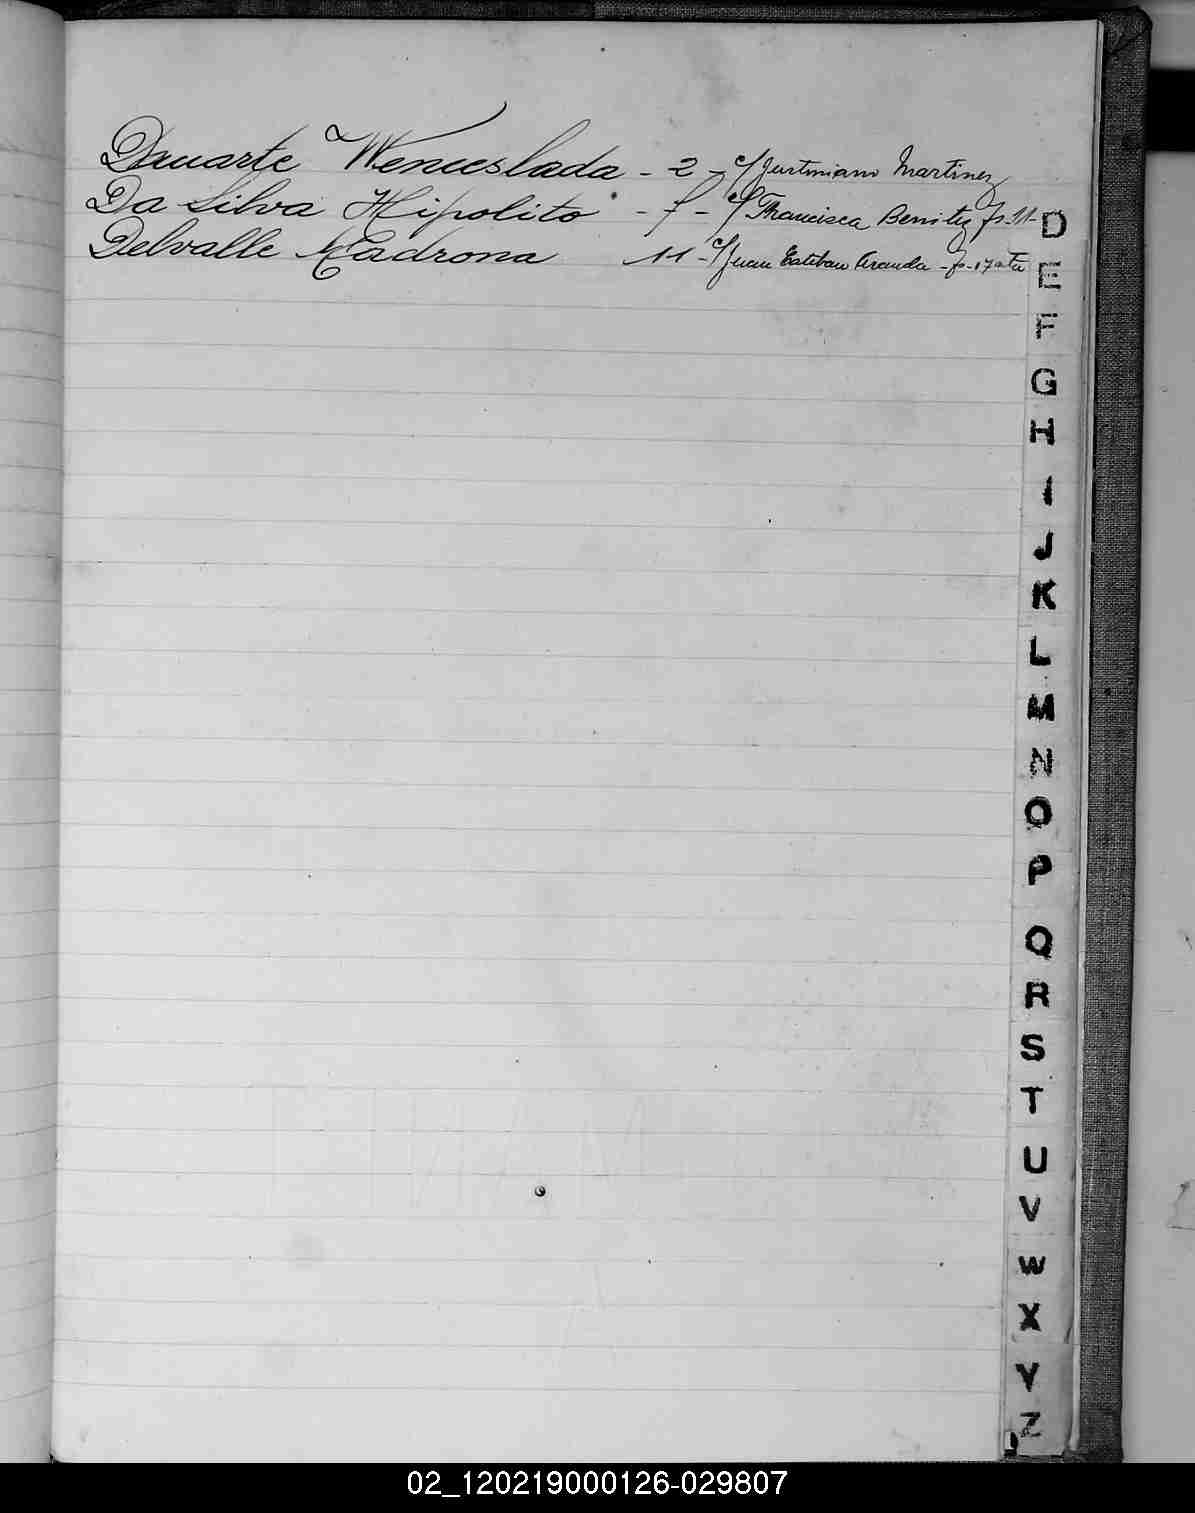 Duuarte Wenceslada - 2 - c/ Justiniano Martinez
Da Silva Hipolito - f - c/ Francisca Benitez fs. 11-
Delvalle Madrona 11 - c/ Juan Esteban Aranda - fs - 17
D
E
F
G
H
I
J
K
L
M
N
O
P
Q
R
S
T
U
V
W
X
Y
Z
02_120219000126-029807